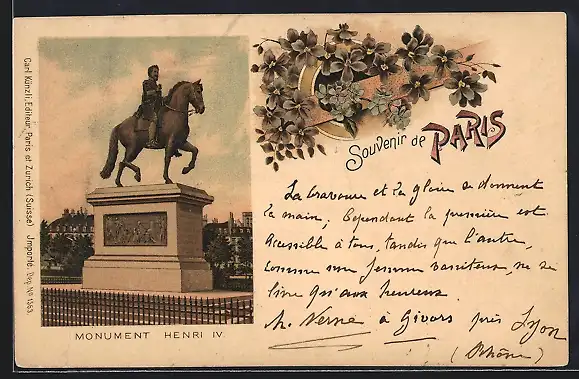 Carl Künzli, Editeur, Paris et Zurich (Suisse) Importé. Dep. No 1363.
MONUMENT HENRI IV.
Souvenir de PARIS
La bravoure et la gloire se donnent
la main; Cependant la première est
Accessible à tous, tandis que l'autre,
comme une femme se
livre qu'aux heureux.
Verne à Givors près Lyon
(Rhône)